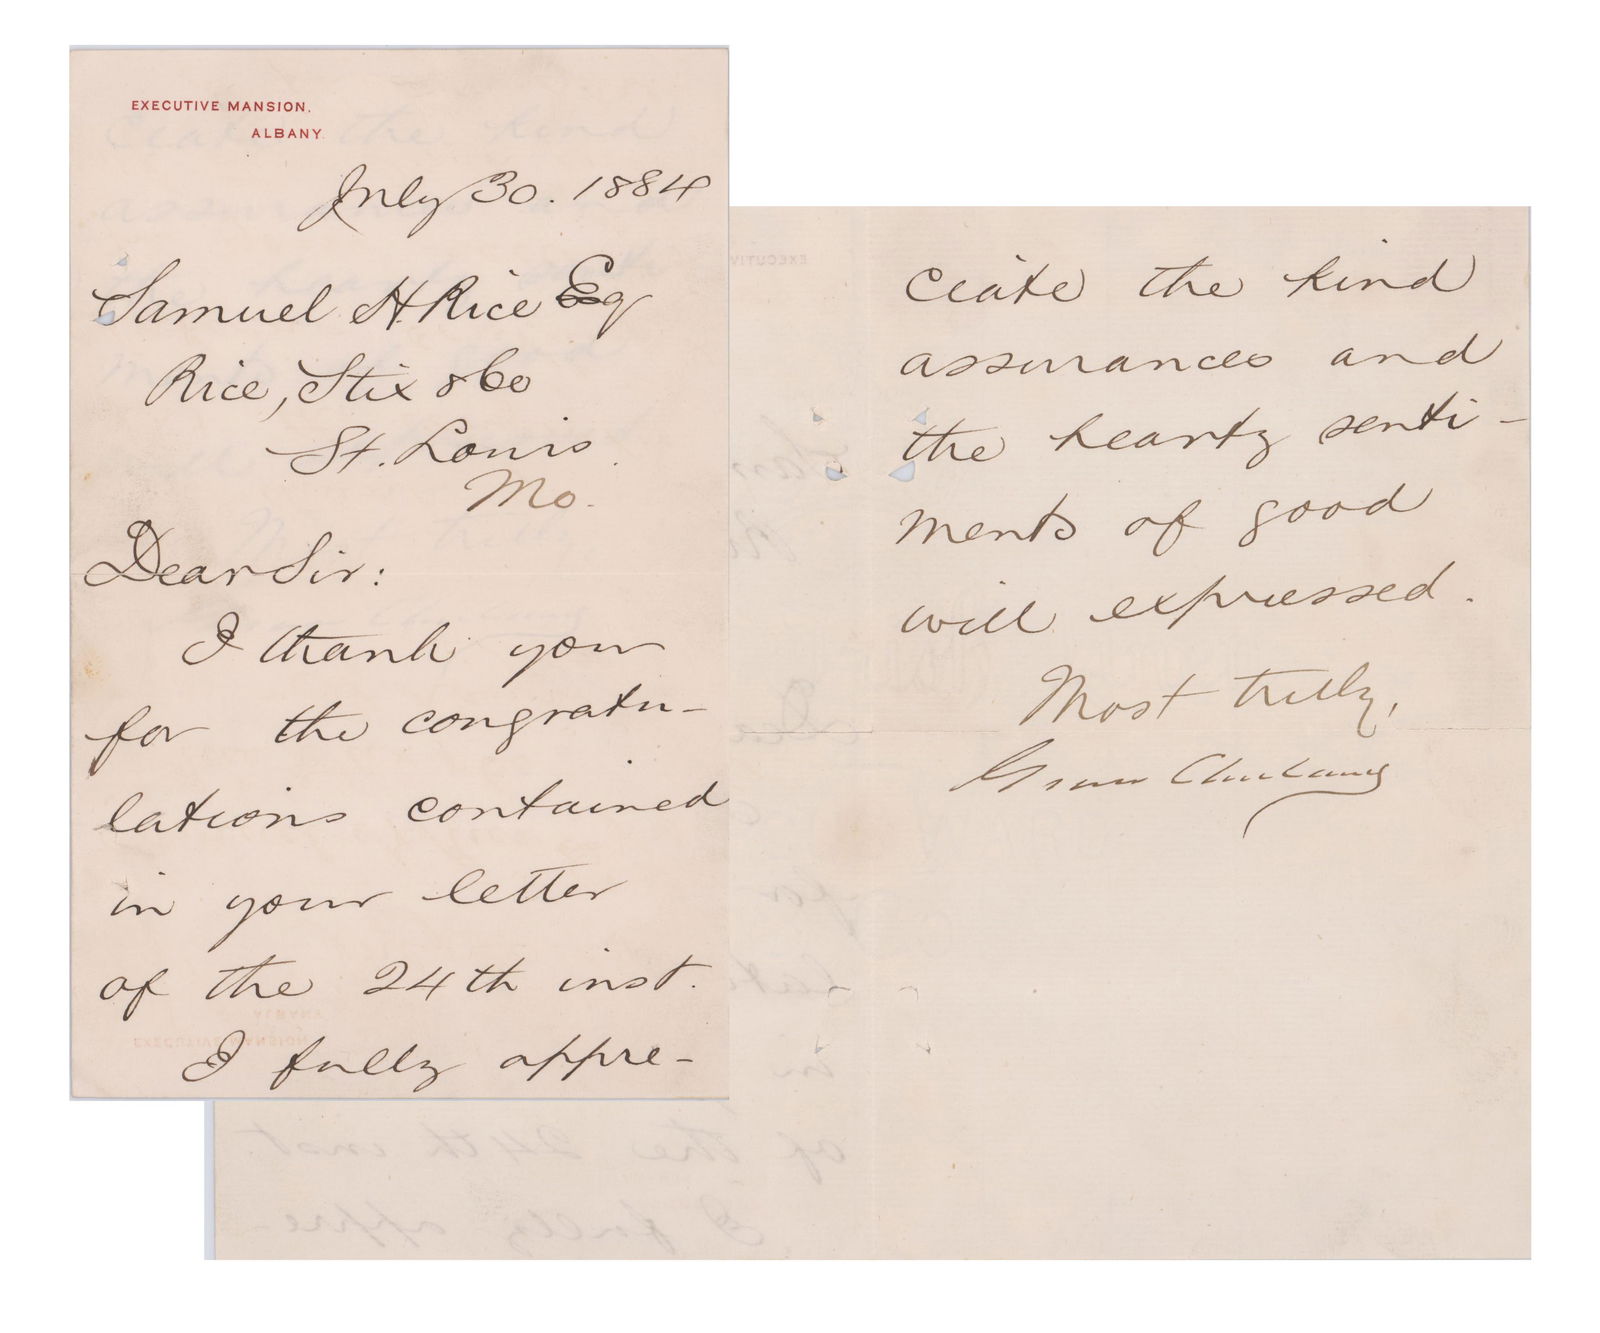 EXECUTIVE MANSION,
ALBANY.
July 30. 1884
Samuel H. Rice Esq
Rice, Stix & Co
St. Louis
Mo.
Dear Sir:
I thank you
for the congratu-
lations contained
in your letter
of the 24th inst.
I fully appre-
ciate the kind
assurances and
the hearty senti-
ments of good
will expressed.
Most truly,
Grover Cleveland